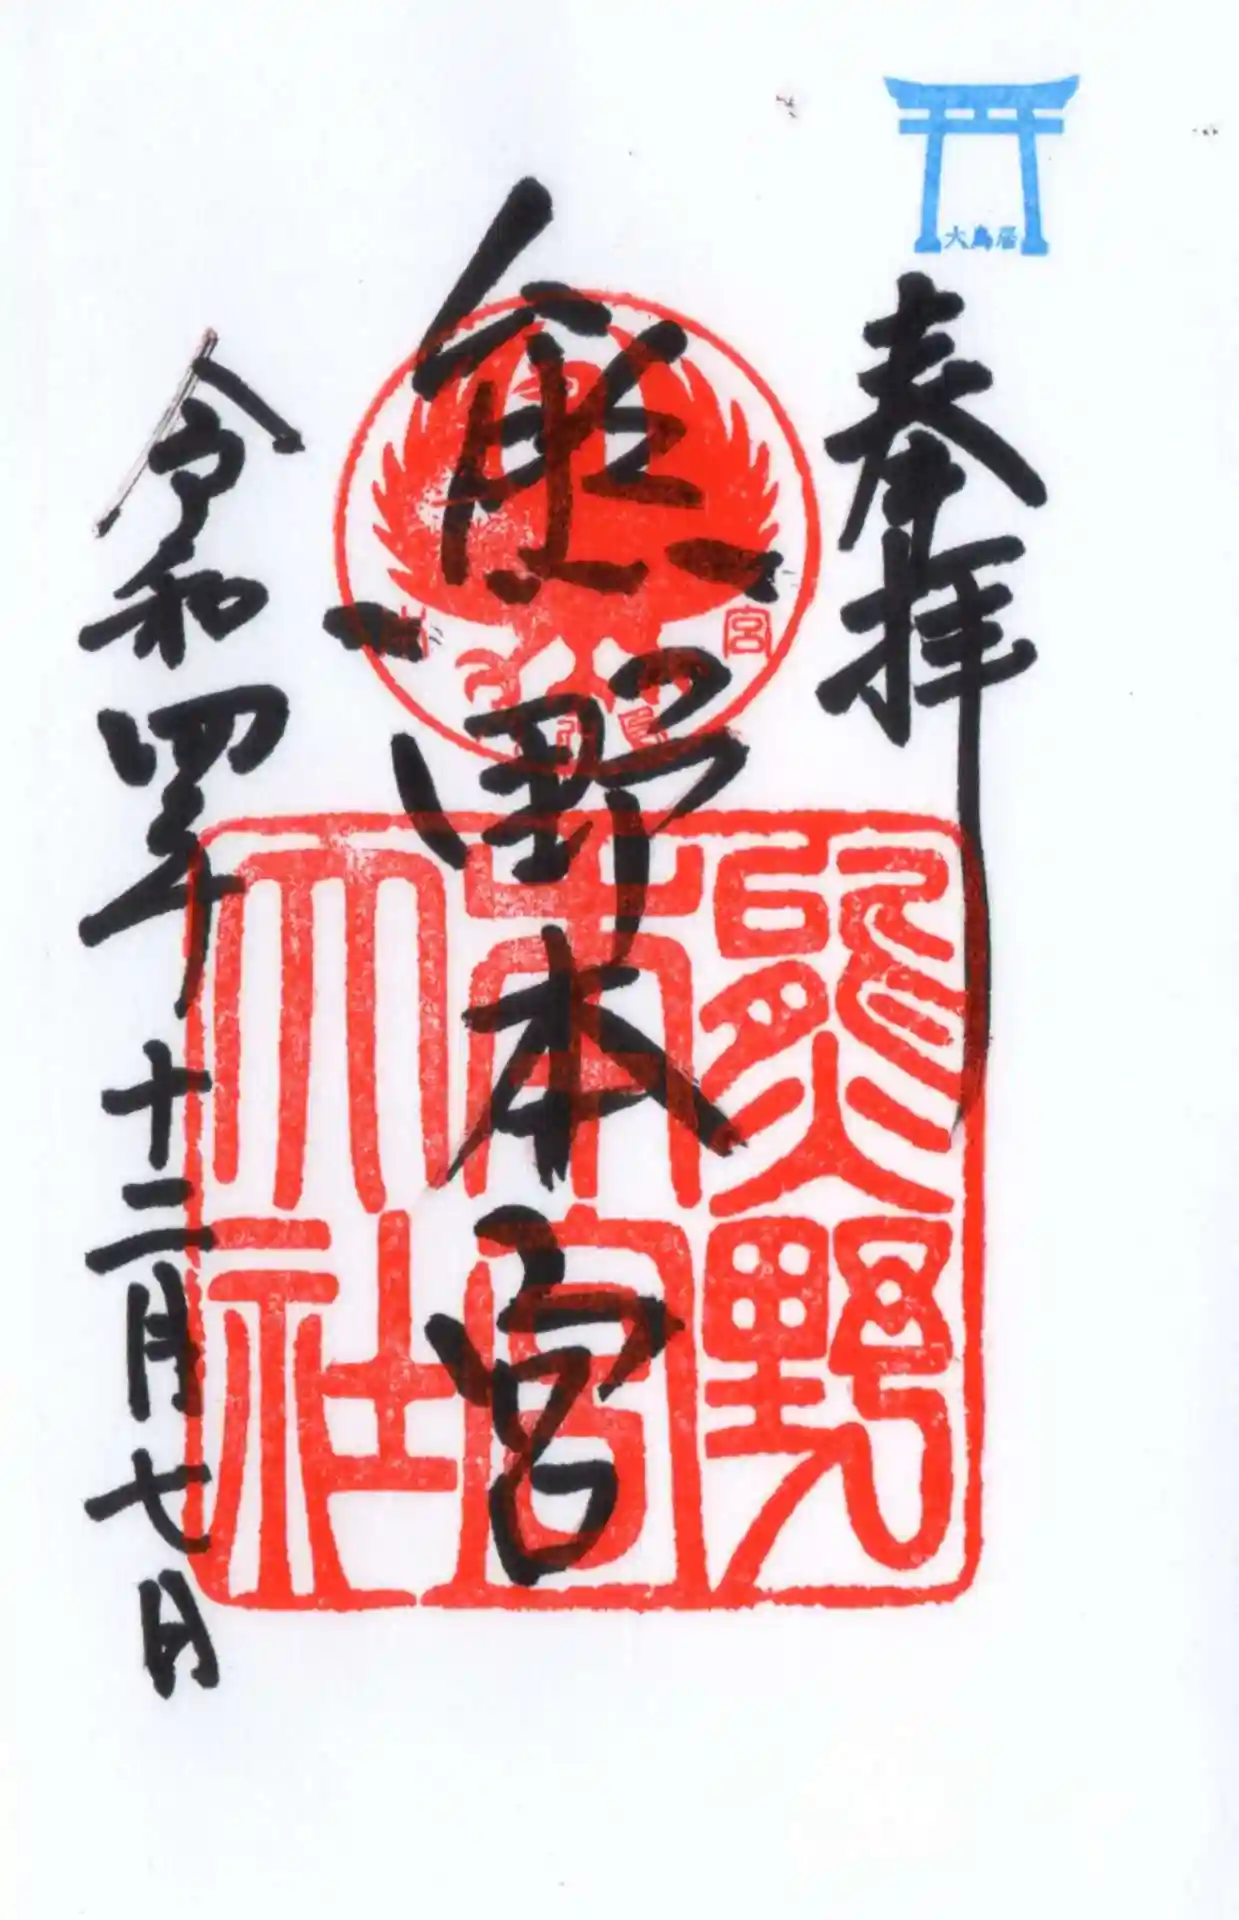 大鳥居
奉拝
熊野本宮
熊野
本宮
大社
宮
令和四年十二月七日